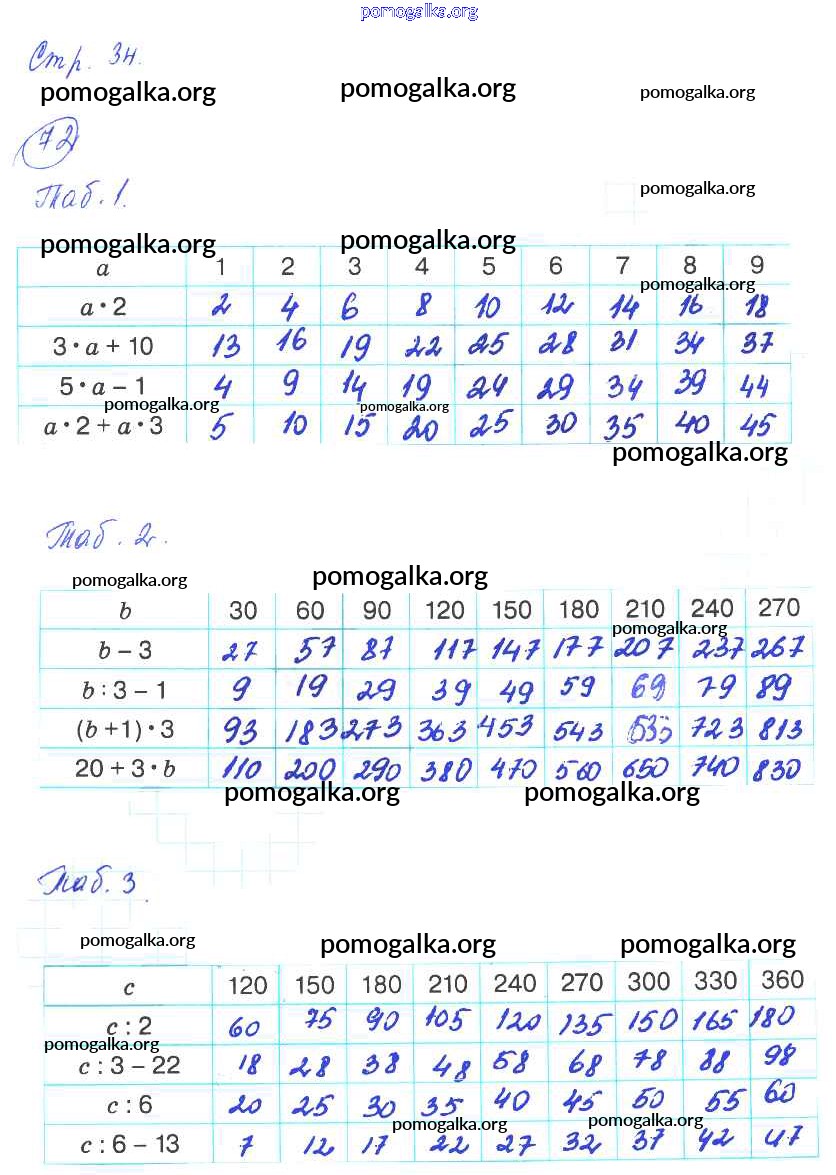 pomogalka.org
Стр. 34.
pomogalka.org pomogalka.org pomogalka.org
72
Таб. 1.
pomogalka.org
pomogalka.org pomogalka.org
a 1 2 3 4 5 6 7 8 9
pomogalka.org
a · 2 2 4 6 8 10 12 14 16 18
3 · a + 10 13 16 19 22 25 28 31 34 37
5 · a – 1 4 9 14 19 24 29 34 39 44
pomogalka.org pomogalka.org
a · 2 + a · 3 5 10 15 20 25 30 35 40 45
pomogalka.org
Таб. 2.
pomogalka.org pomogalka.org
b 30 60 90 120 150 180 210 240 270
pomogalka.org
b – 3 27 57 87 117 147 177 207 237 267
b : 3 – 1 9 19 29 39 49 59 69 79 89
(b + 1) · 3 93 183 273 363 453 543 723 813
20 + 3 · b 110 200 290 380 470 560 650 740 830
pomogalka.org pomogalka.org
Таб. 3
pomogalka.org pomogalka.org pomogalka.org
c 120 150 180 210 240 270 300 330 360
c : 2 60 75 90 105 120 135 150 165 180
pomogalka.org
c : 3 – 22 18 28 38 48 58 68 78 88 98
c : 6 20 25 30 35 40 45 50 55 60
pomogalka.org pomogalka.org
c : 6 – 13 7 12 17 22 27 32 37 42 47